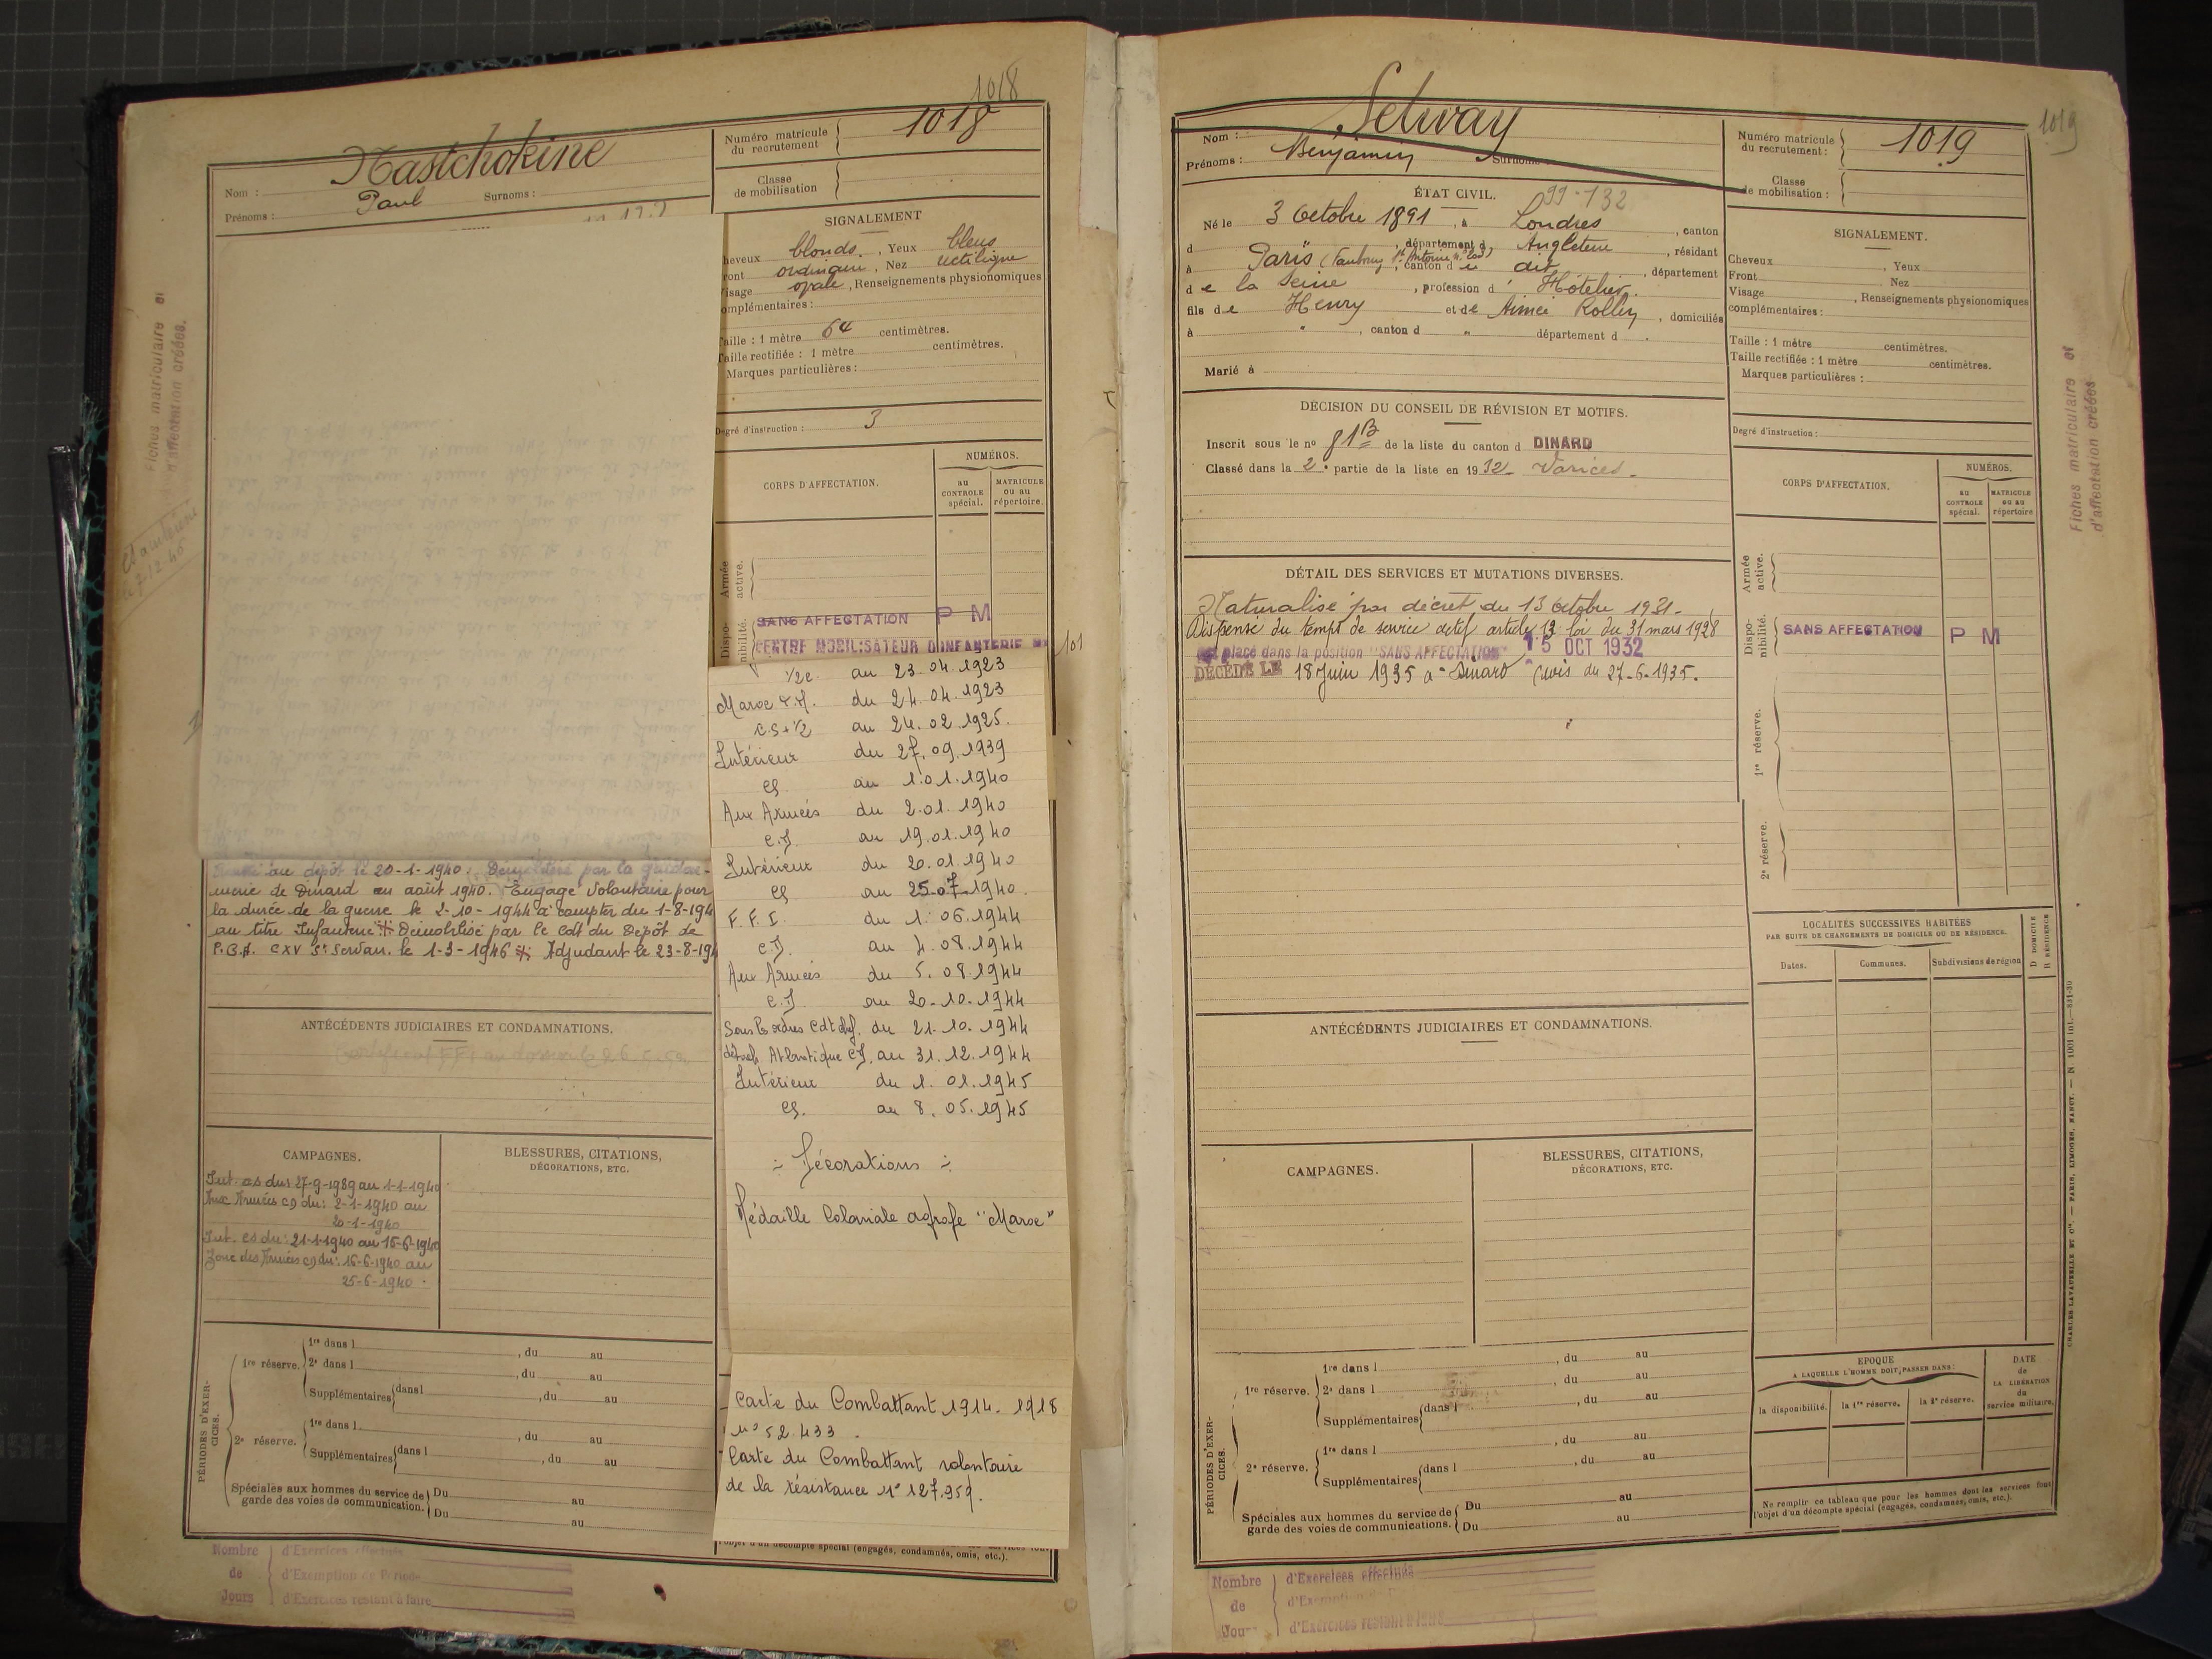 1018
Nom : Nastchokine
Prénoms : Paul Surnoms :
Numéro matricule du recrutement 1018
Classe de mobilisation
SIGNALEMENT
heveux blonds , Yeux bleus
ront ordinaire , Nez rectiligne
isage ovale , Renseignements physionomiques
omplémentaires :
Taille : 1 mètre 64 centimètres.
Taille rectifiée : 1 mètre centimètres.
Marques particulières :
Degré d'instruction : 3
CORPS D'AFFECTATION.
NUMÉROS.
au CONTROLE spécial.
MATRICULE ou au répertoire.
Armée active.
Disponibilité.
SANS AFFECTATION P M
CENTRE MOBILISATEUR D'INFANTERIE N° 101
Fiches matriculaire et
d'affectation créées.
1/2c. au 23.04.1923
Maroc du 24.04.1923
C.S+1/2 au 24.02.1925.
Intérieur du 27.09.1939
CS. au 1.01.1940
Aux Armées du 2.01.1940
C.D. au 19.01.1940
Intérieur du 20.01.1940
CS au 25.07.1940.
F.F.I. du 1.06.1944
C.D. au 4.08.1944
Aux Armées du 5.08.1944
C.D. au 20-10-1944
Sous les ordres Cdt du 21.10.1944
Atlantique au 31.12.1944
Intérieur du 1.01.1945
CS. au 8.05.1945
Décorations
Médaille Coloniale agrafe "Maroc"
Carte du Combattant 1914-1918
n° 52 433.
Carte du Combattant volontaire
de la résistance n° 127.959.
au dépôt le 20-1-1940. Démobilisé par la gendar-
merie de Dinard en août 1940. Engagé Volontaire pour
la durée de la guerre le 2-10-1944 à compter du 1-8-194
au titre Infanterie. Démobilisé par le Cdt du Dépôt de
St Servan. le 1-3-1946 Adjudant le 23-8-194
ANTÉCÉDENTS JUDICIAIRES ET CONDAMNATIONS.
CAMPAGNES.
Int. CS du: 27-9-1939 au 1-1-1940
Aux Armées CD du: 2-1-1940 au
20-1-1940
Int. CS du: 21-1-1940 au 15-6-1940
Zone des Armées CD du: 16-6-1940 au
25-6-1940.
BLESSURES, CITATIONS,
DÉCORATIONS, ETC.
PÉRIODES D'EXERCICES.
1re réserve. 1re dans l , du au
2e dans l , du au
Supplémentaires dans l , du au
2e réserve. 1re dans l , du au
Supplémentaires dans l , du au
Spéciales aux hommes du service de Du au
garde des voies de communication. Du au
l'objet d'un décompte spécial (engagés, condamnés, omis, etc.).
Nombre d'Exercices effectués
de d'Exemption de Période
Jours d'Exercices restant à faire
1019
Nom : Selway
Prénoms : Benjamin Surnoms
Numéro matricule du recrutement : 1019
Classe de mobilisation :
ÉTAT CIVIL. 99-132
Né le 3 Octobre 1891 , à Londres , canton
d , département d Angleterre , résidant
à Paris (Faubourg St Antoine , canton d u dit , département
d e la Seine , profession d' Hôtelier.
fils de Henry et de Aimée Rollin , domiciliés
à " , canton d " département d "
Marié à
SIGNALEMENT.
Cheveux , Yeux
Front , Nez
Visage , Renseignements physionomiques
complémentaires :
Taille : 1 mètre centimètres.
Taille rectifiée : 1 mètre centimètres.
Marques particulières :
Degré d'instruction :
DÉCISION DU CONSEIL DE RÉVISION ET MOTIFS.
Inscrit sous le no 81B de la liste du canton d DINARD
Classé dans la 2e partie de la liste en 1932 Varices.
DÉTAIL DES SERVICES ET MUTATIONS DIVERSES.
Naturalisé par décret du 13 Octobre 1931.
Dispensé du temps de service actif article 13 loi du 31 mars 1928
Est placé dans la position "SANS AFFECTATION" 15 OCT 1932
DÉCÉDÉ LE 18 Juin 1935 à Dinard (avis du 27-6-1935.
CORPS D'AFFECTATION.
NUMÉROS.
au CONTROLE spécial.
MATRICULE ou au répertoire
Armée active.
Disponibilité.
SANS AFFECTATION P M
1re réserve.
2e réserve.
LOCALITÉS SUCCESSIVES HABITÉES
PAR SUITE DE CHANGEMENTS DE DOMICILE OU DE RÉSIDENCE.
Dates.
Communes.
Subdivisions de région
D DOMICILE
R RÉSIDENCE
Fiches matriculaire et
d'affectation créées
ANTÉCÉDENTS JUDICIAIRES ET CONDAMNATIONS.
CAMPAGNES.
BLESSURES, CITATIONS,
DÉCORATIONS, ETC.
PÉRIODES D'EXERCICES.
1re réserve. 1re dans l , du au
2e dans l , du au
Supplémentaires dans l , du au
2e réserve. 1re dans l , du au
Supplémentaires dans l , du au
Spéciales aux hommes du service de Du au
garde des voies de communications. Du au
EPOQUE
A LAQUELLE L'HOMME DOIT PASSER DANS :
la disponibilité.
la 1re réserve.
la 2e réserve.
DATE
de
LA LIBÉRATION
du
service militaire.
Ne remplir ce tableau que pour les hommes dont les services font
l'objet d'un décompte spécial (engagés, condamnés, omis, etc.).
CHARLES-LAVAUZELLE ET Cie. — PARIS, LIMOGES, NANCY. — N 1001 int.—831-30
Nombre d'Exercices effectués
de d'Exemption
Jour d'Exercices restant à faire